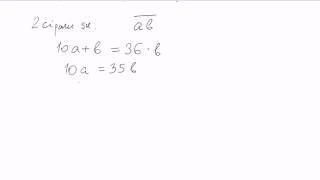 2 ciparu sk. \overline{ab}
10a+b = 36·b
10a = 35b